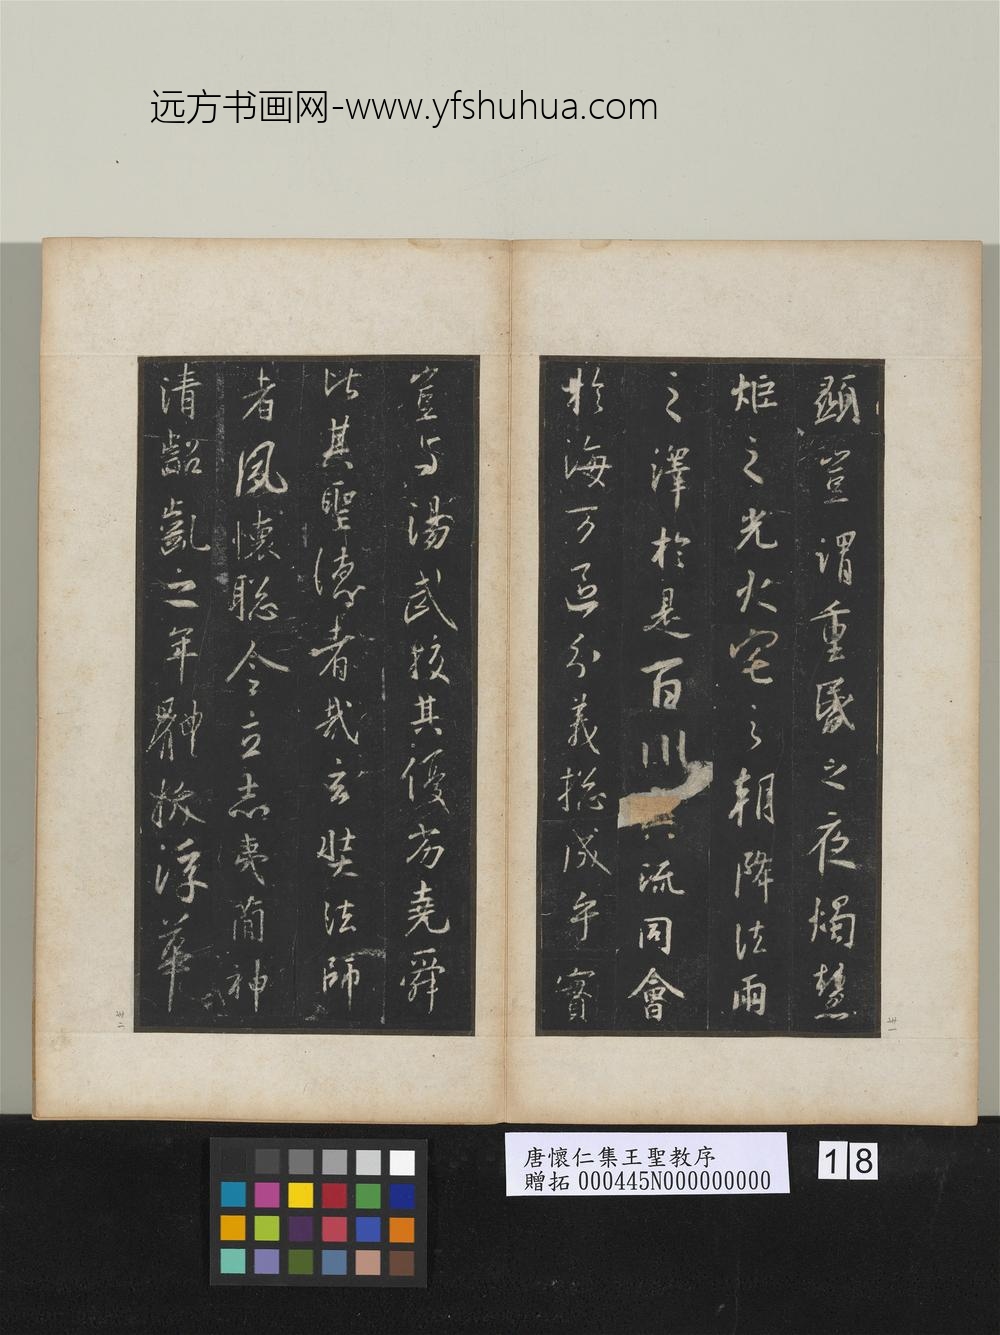 远方书画网-www.yfshuhua.com
顯豈謂重昬之夜燭慧
炬之光火宅之朝降法雨
之澤於是百川異流同會
於海万區分義揔成乎實
豈与湯武校其優劣堯舜
比其聖德者哉玄奘法師
者夙懷聡令立志夷簡神
清齠齔之年體拔浮華
唐懷仁集王聖教序
贈拓 000445N000000000
18